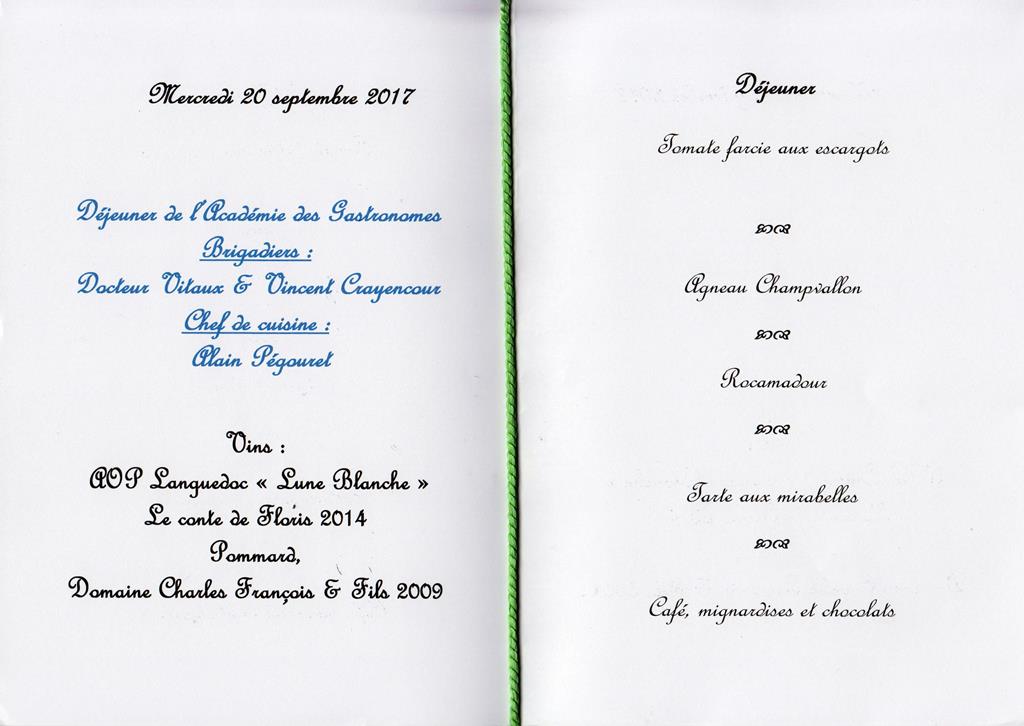 Mercredi 20 septembre 2017
Déjeuner de l'Académie des Gastronomes
Brigadiers :
Docteur Vitaux & Vincent Crayencour
Chef de cuisine :
Alain Pégouret
Vins :
AOP Languedoc « Lune Blanche »
Le conte de Floris 2014
Pommard,
Domaine Charles François & Fils 2009
Déjeuner
Tomate farcie aux escargots
Agneau Champvallon
Rocamadour
Tarte aux mirabelles
Café, mignardises et chocolats